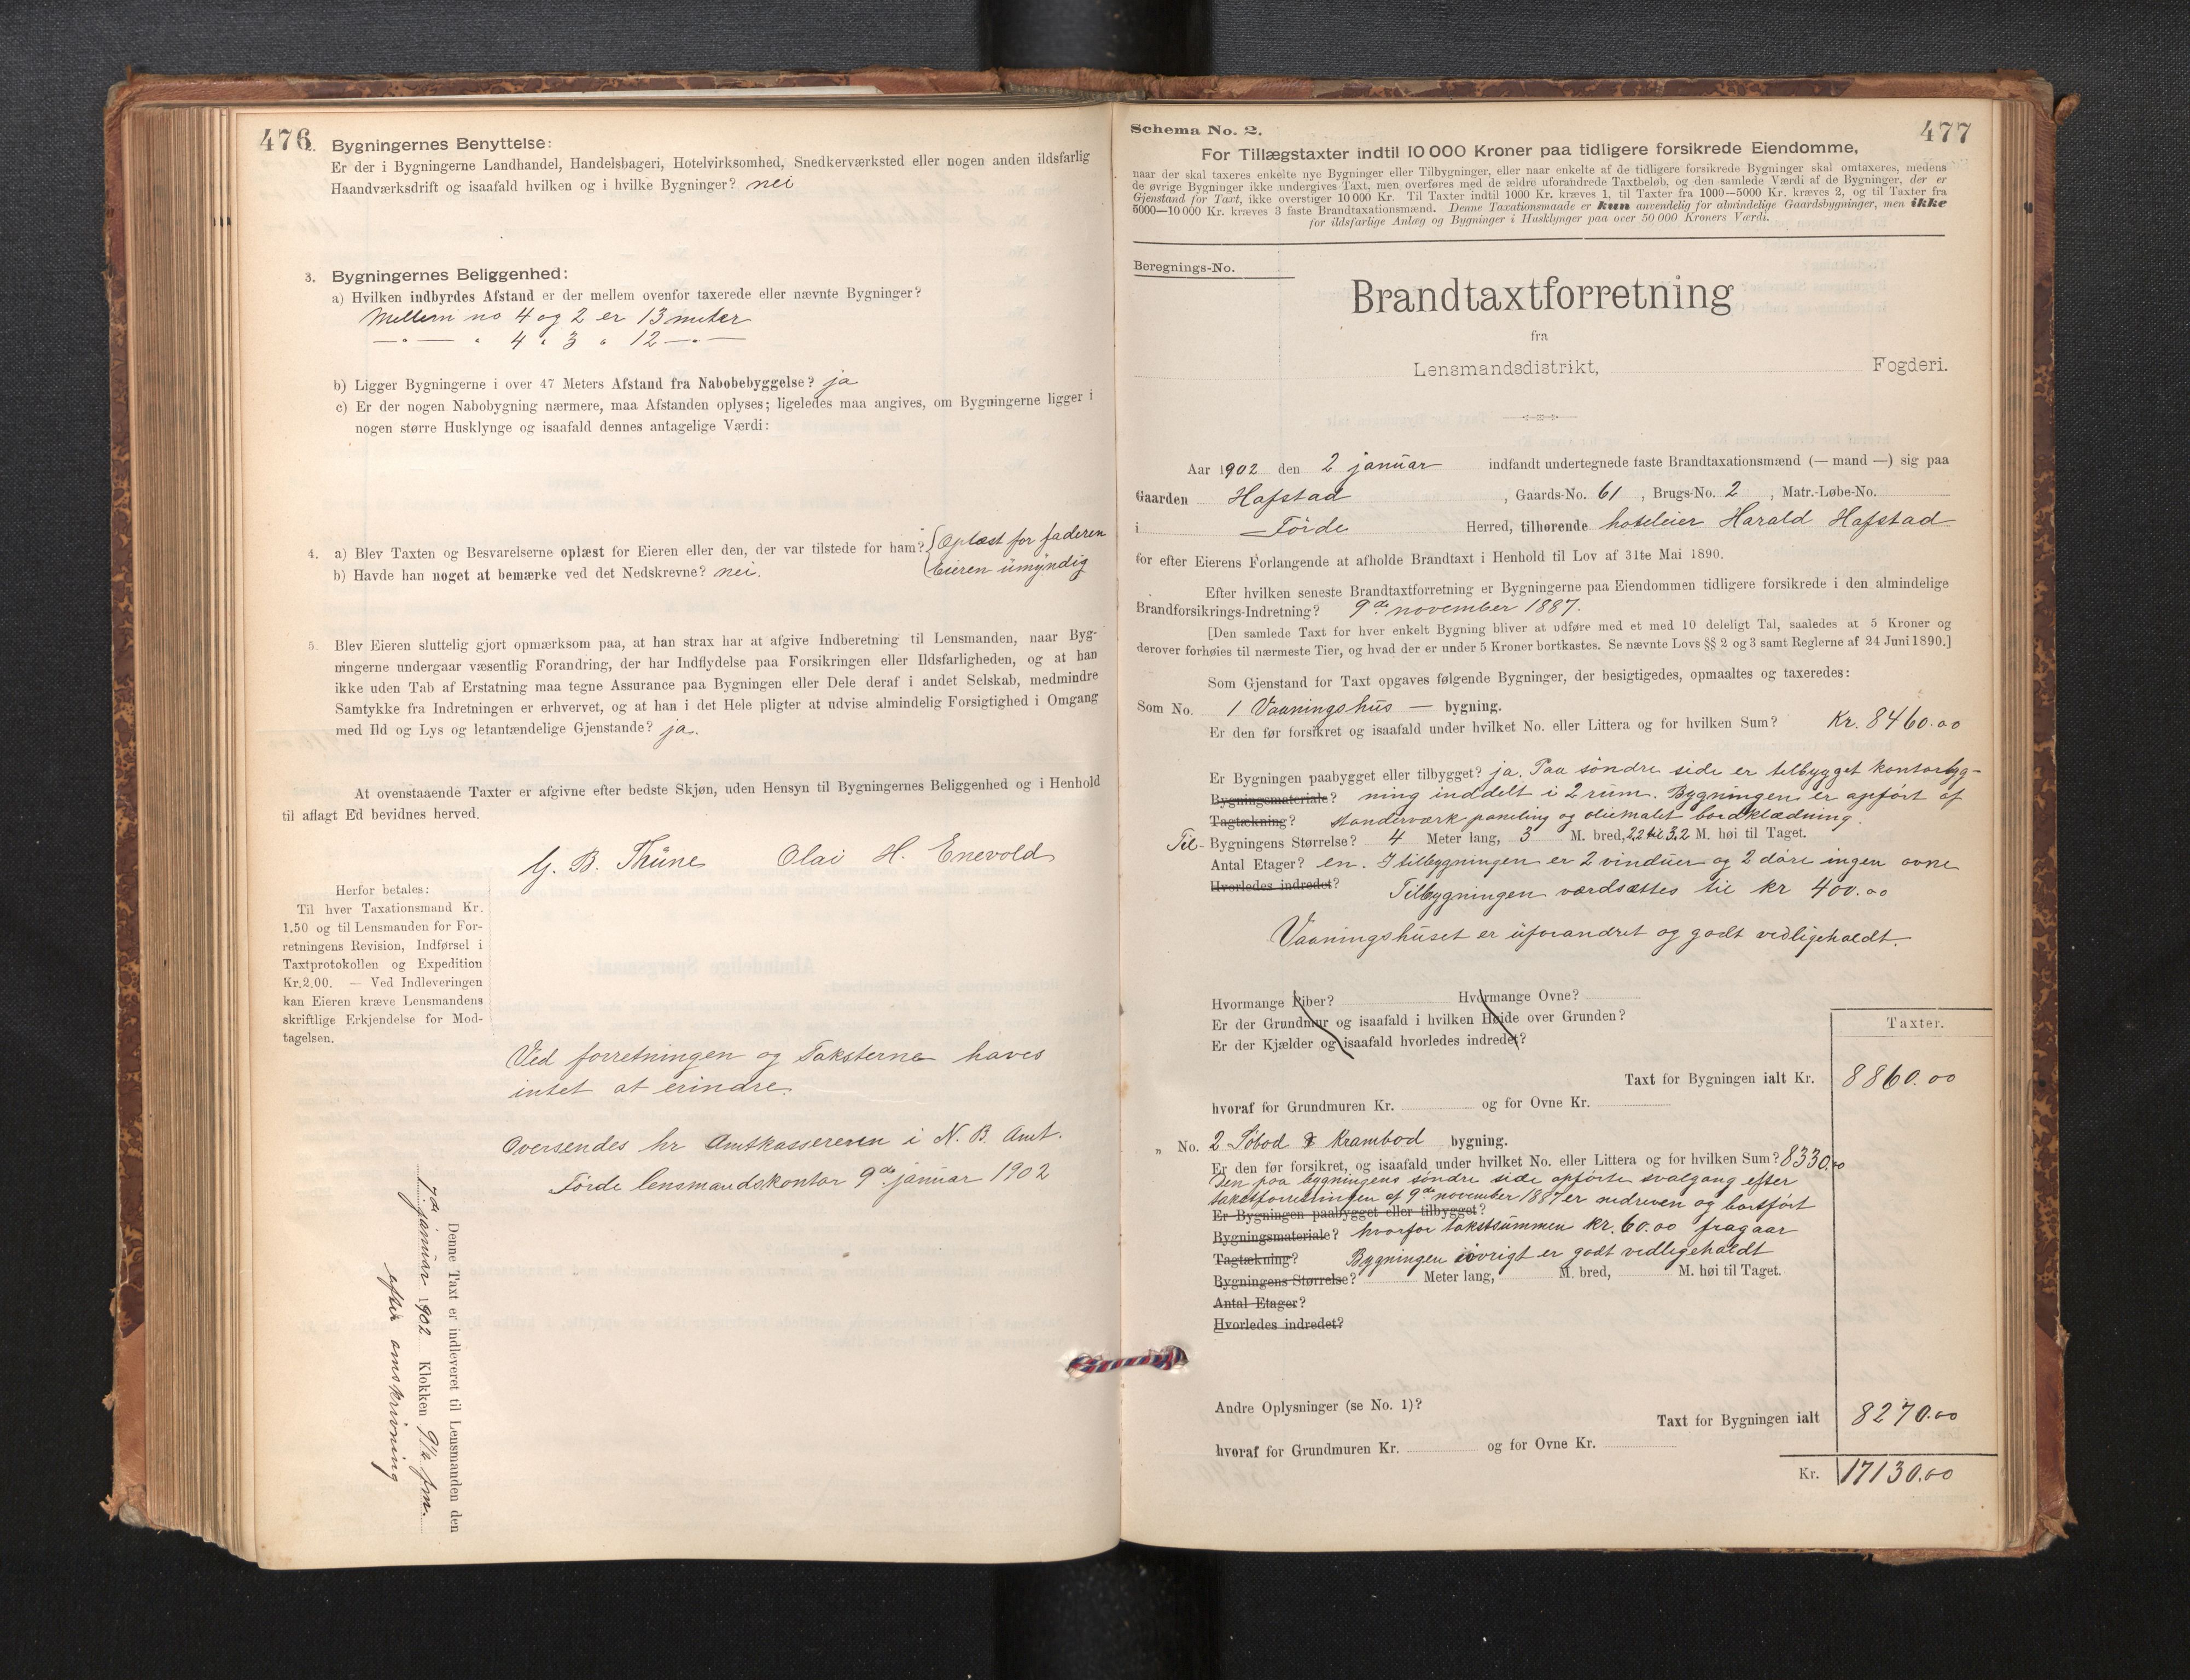 476
2. Bygningernes Benyttelse:
Er der i Bygningerne Landhandel, Handelsbageri, Hotelvirksomhed, Snedkerværksted eller nogen anden ildsfarlig
Haandværksdrift og isaafald hvilken og i hvilke Bygninger? nei
3. Bygningernes Beliggenhed:
a) Hvilken indbyrdes Afstand er der mellem ovenfor taxerede eller nævnte Bygninger?
Mellem no 4 og 2 er 13 meter
—"— " 4 " 3 " 12 —"—
b) Ligger Bygningerne i over 47 Meters Afstand fra Nabobebyggelse? ja
c) Er der nogen Nabobygning nærmere, maa Afstanden oplyses; ligeledes maa angives, om Bygningerne ligger i
nogen større Husklynge og isaafald dennes antagelige Værdi:
4. a) Blev Taxten og Besvarelserne oplæst for Eieren eller den, der var tilstede for ham? Oplæst for faderen
b) Havde han noget at bemærke ved det Nedskrevne? nei. Eieren umyndig
5. Blev Eieren sluttelig gjort opmærksom paa, at han strax har at afgive Indberetning til Lensmanden, naar Byg-
ningerne undergaar væsentlig Forandring, der har Indflydelse paa Forsikringen eller Ildsfarligheden, og at han
ikke uden Tab af Erstatning maa tegne Assurance paa Bygningen eller Dele deraf i andet Selskab, medmindre
Samtykke fra Indretningen er erhvervet, og at han i det Hele pligter at udvise almindelig Forsigtighed i Omgang
med Ild og Lys og letantændelige Gjenstande? ja.
At ovenstaaende Taxter er afgivne efter bedste Skjøn, uden Hensyn til Bygningernes Beliggenhed og i Henhold
til aflagt Ed bevidnes herved.
G. B. Thüne Olai H. Enevold
Herfor betales:
Til hver Taxationsmand Kr.
1.50 og til Lensmanden for For-
retningens Revision, Indførsel i
Taxtprotokollen og Expedition
Kr.2.00. — Ved Indleveringen
kan Eieren kræve Lensmandens
skriftlige Erkjendelse for Mod-
tagelsen.
Ved forretningen og Taksterne haves
intet at erindre.
Oversendes hr Amtkassereren i N. B. Amt.
Förde lensmandskontor 9de januar 1902
Denne Taxt er indleveret til Lensmanden den
7de januar 1902 Klokken 9½ fm.
efter omskrivning
477
Schema No. 2.
For Tillægstaxter indtil 10 000 Kroner paa tidligere forsikrede Eiendomme,
naar der skal taxeres enkelte nye Bygninger eller Tilbygninger, eller naar enkelte af de tidligere forsikrede Bygninger skal omtaxeres, medens
de øvrige Bygninger ikke undergives Taxt, men overføres med de ældre uforandrede Taxtbeløb, og den samlede Værdi af de Bygninger, der er
Gjenstand for Taxt, ikke overstiger 10 000 Kr. Til Taxter indtil 1000 Kr. kræves 1, til Taxter fra 1000—5000 Kr. kræves 2, og til Taxter fra
5000—10 000 Kr. kræves 3 faste Brandtaxationsmænd. Denne Taxationsmaade er kun anvendelig for almindelige Gaardsbygninger, men ikke
for ildsfarlige Anlæg og Bygninger i Husklynger paa over 50 000 Kroners Værdi.
Beregnings-No.
Brandtaxtforretning
fra
Lensmandsdistrikt, Fogderi.
Aar 1902 den 2 januar indfandt undertegnede faste Brandtaxationsmænd (— mand —) sig paa
Gaarden Hafstad, Gaards-No. 61, Brugs-No. 2, Matr.-Løbe-No.
i Förde Herred, tilhørende hoteleier Harald Hafstad
for efter Eierens Forlangende at afholde Brandtaxt i Henhold til Lov af 31te Mai 1890.
Efter hvilken seneste Brandtaxtforretning er Bygningerne paa Eiendommen tidligere forsikrede i den almindelige
Brandforsikrings-Indretning? 9de november 1887.
[Den samlede Taxt for hver enkelt Bygning bliver at udføre med et med 10 deleligt Tal, saaledes at 5 Kroner og
derover forhøies til nærmeste Tier, og hvad der er under 5 Kroner bortkastes. Se nævnte Lovs §§ 2 og 3 samt Reglerne af 24 Juni 1890.]
Som Gjenstand for Taxt opgaves følgende Bygninger, der besigtigedes, opmaaltes og taxeredes:
Som No. 1 Vaaningshus — bygning.
Er den før forsikret og isaafald under hvilket No. eller Littera og for hvilken Sum? Kr. 8460.00
Er Bygningen paabygget eller tilbygget? ja. Paa söndre side er tilbygget kontorbyg-
Bygningsmateriale? ning inddelt i 2 rüm. Bygningen er opfört af
Tagtækning? standerværk paneling og oliemalet bordklædning.
Til- Bygningens Størrelse? 4 Meter lang, 3 M. bred, 2,2 til 3,2 M. høi til Taget.
Antal Etager? en. I tilbygningen er 2 vinduer og 2 döre ingen ovne
Hvorledes indredet? Tilbygningen værdsættes til kr 400.00
Vaaningshuset er uforandret og godt vedligeholdt.
Hvormange Piber? Hvormange Ovne?
Er der Grundmur og isaafald i hvilken Høide over Grunden?
Er der Kjælder og isaafald hvorledes indredet?
Taxter.
Taxt for Bygningen ialt Kr. 8860.00
hvoraf for Grundmuren Kr. og for Ovne Kr.
" No. 2 Söbod & Krambod bygning.
Er den før forsikret, og isaafald under hvilket No. eller Littera og for hvilken Sum? 8330.00
Den paa bygningens söndre side opförte svalgang efter
takstforretningen af 9de november 1887 er nedreven og bortfört
Er Bygningen paabygget eller tilbygget?
Bygningsmateriale? hvorfor takstsummen kr. 60.00 fragaar
Tagtækning? Bygningen iövrigt er godt vedligeholdt
Bygningens Størrelse? Meter lang, M. bred, M. høi til Taget.
Antal Etager?
Hvorledes indredet?
Andre Oplysninger (se No. 1)?
Taxt for Bygningen ialt 8270.00
hvoraf for Grundmuren Kr. og for Ovne Kr.
Kr. 17130.00